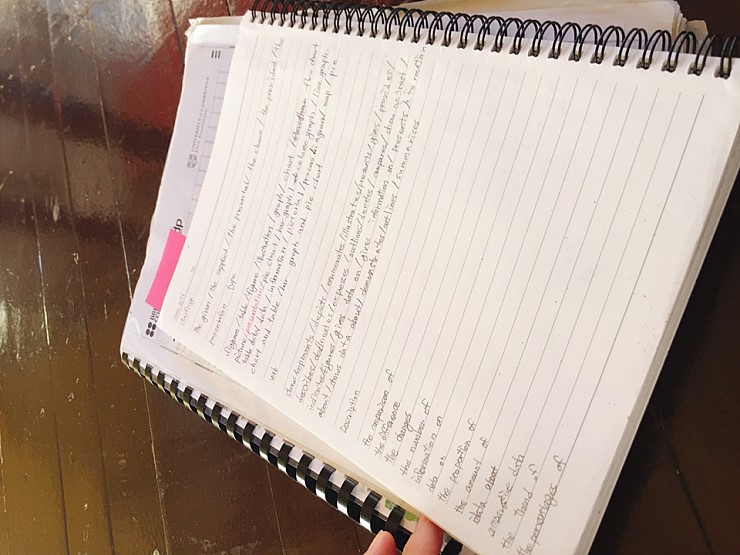 the given / the supplied / the presented / the shown / the provided / the
presentation type
diagram / table / figure / illustration / graph / chart / the chart
picture / presentation / pie chart / bar graph / column graphs / line graph.
table data / data / information / pictorial / process diagram / map / pie
chart and table / bar graph and pie chart.
verb
shows / represents / depicts / enumerates / illustrates / presents / gives / provides /
describes / delineates / expresses / outlines / denotes / compares / show contrast /
indicates / figures / gives data on / gives information on / presents information
about / shows data about / demonstrates / outlines / summarizes
Description
the comparison of
the difference
the changes
the number of
information on
data on
the proportion of
the amount of
data about
comparative data
the trend of
the percentages of